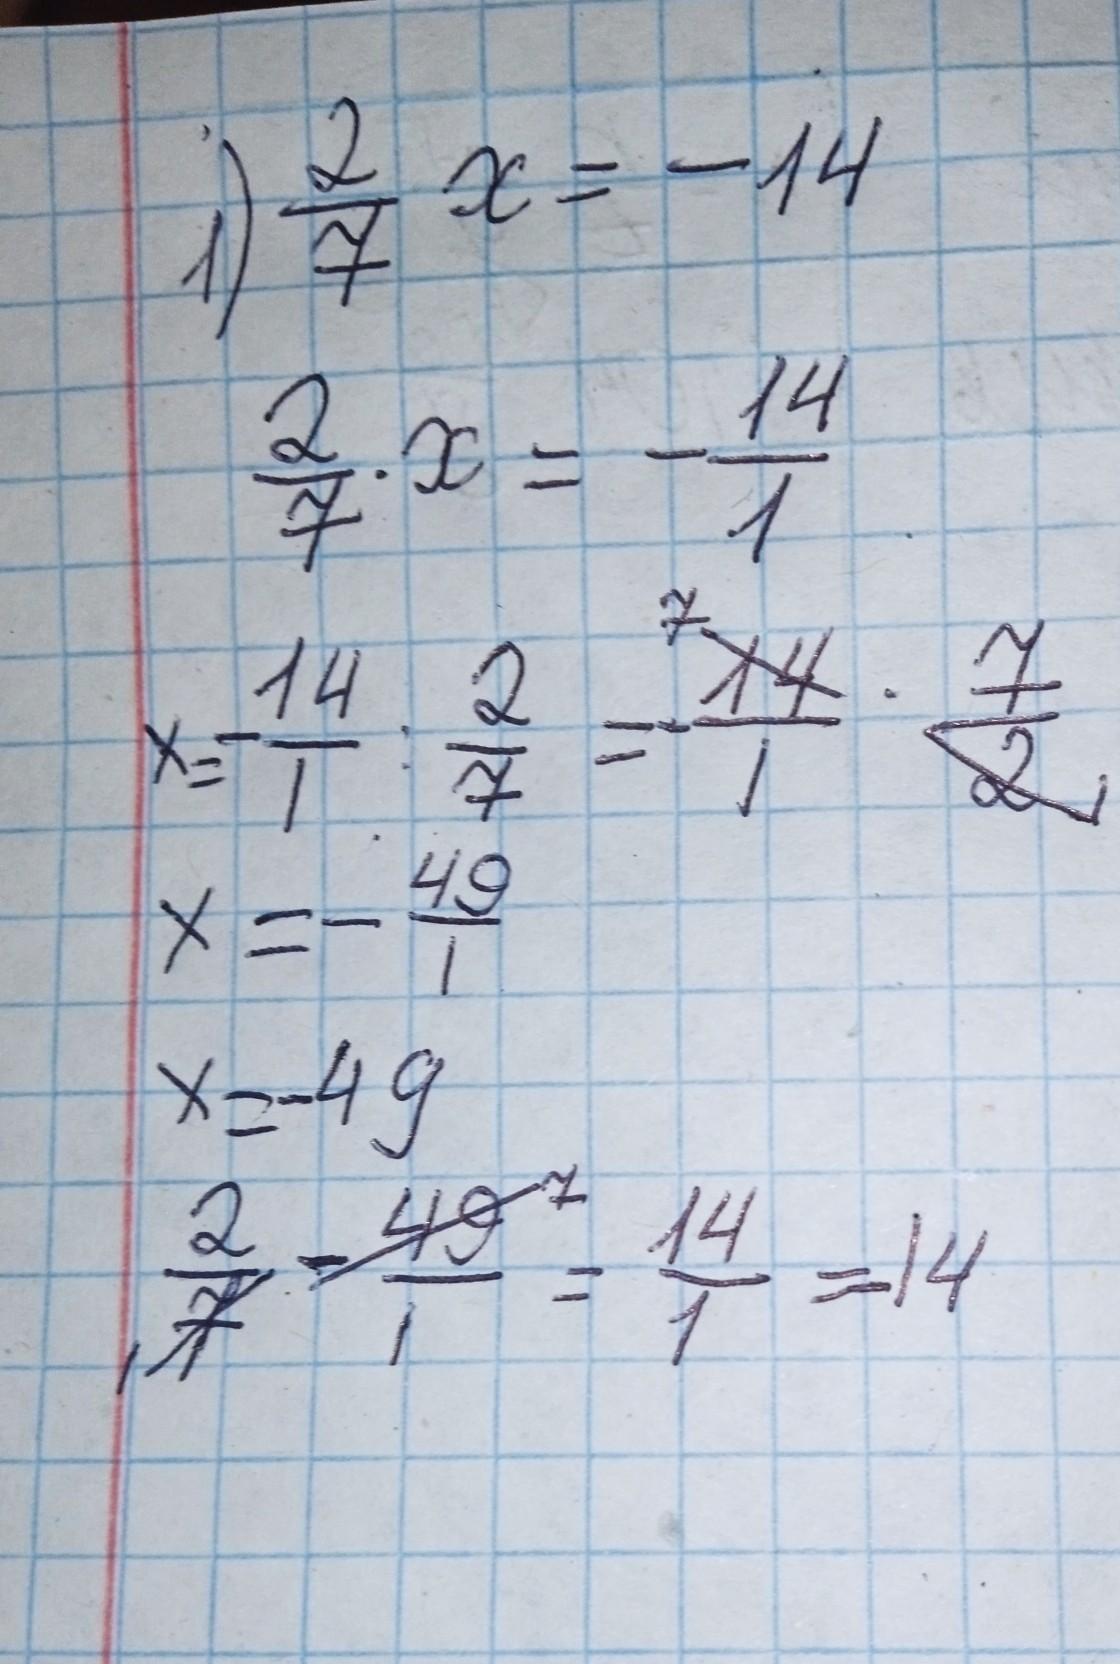 1) 2/7 x = - 14
2/7 · x = - 14/1
x = - 14/1 : 2/7 = - 7 14/1 · 7/2 1
x = - 49/1
x = - 49
2/7 1 - 49/1 7 = 14/1 = -14